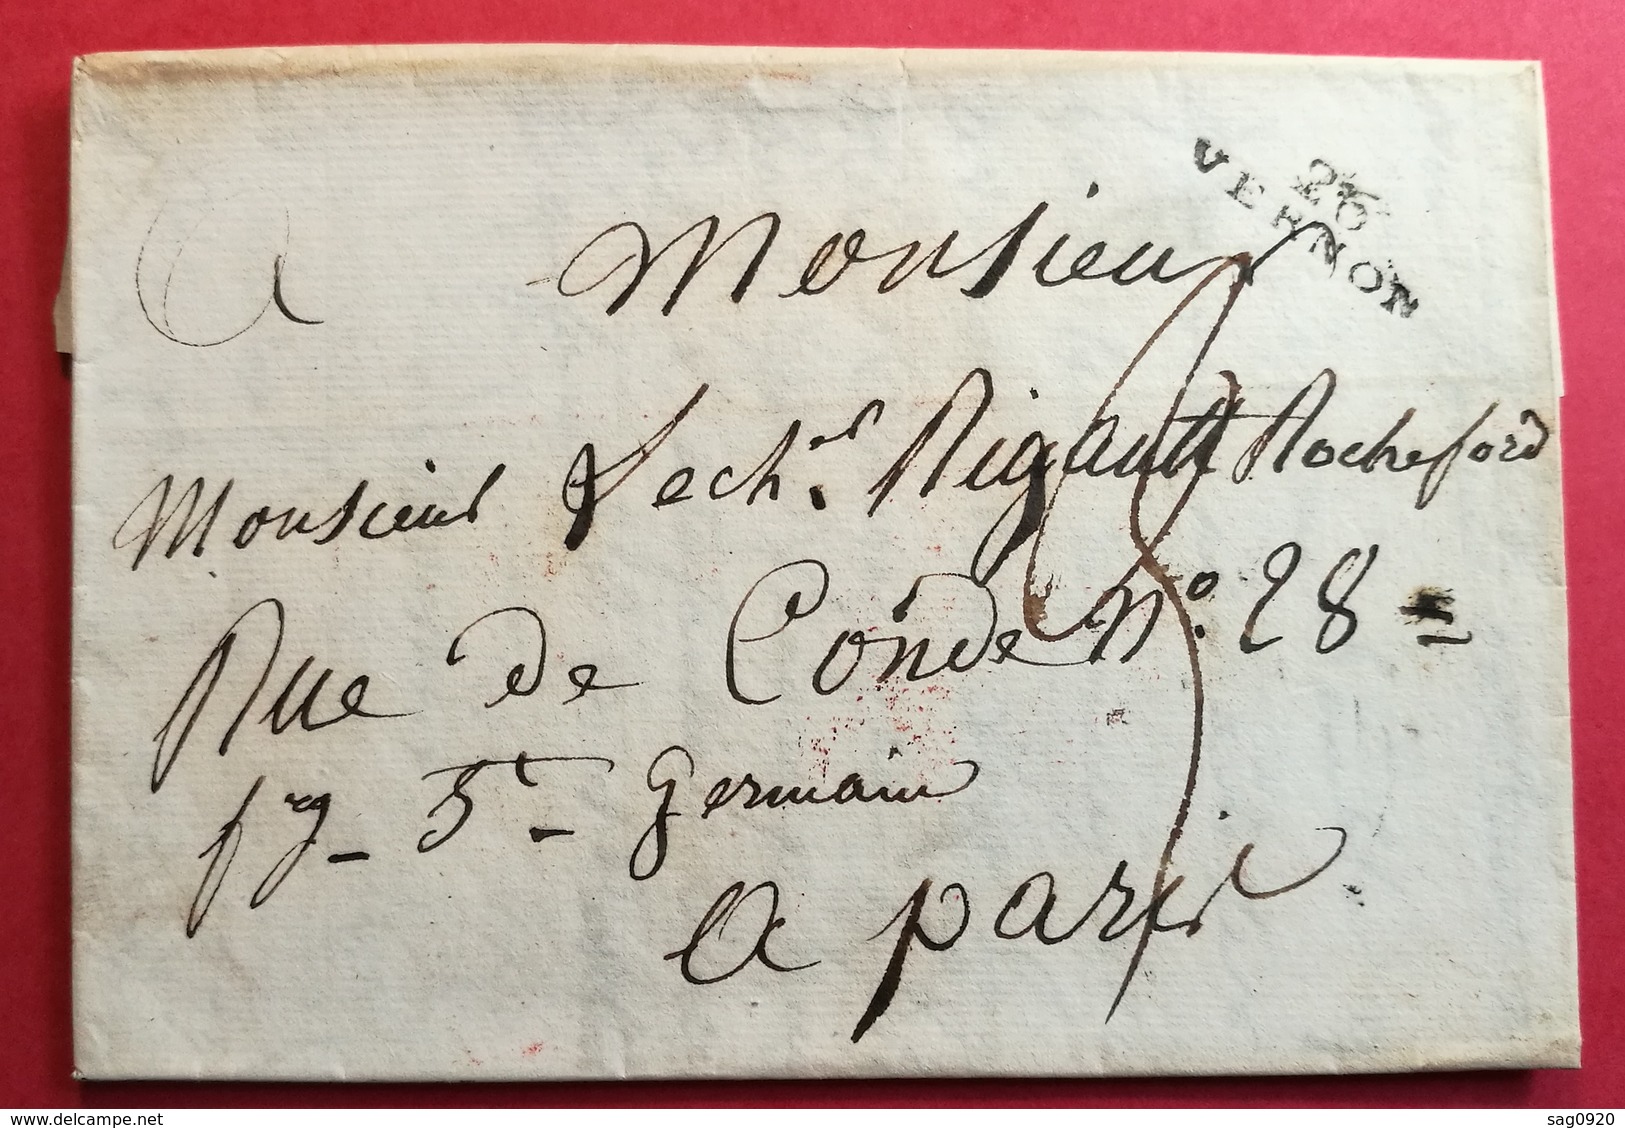 26
VERNON
A Monsieur
Monsieur Le ch.er Rigault Rocheford
Rue de Condé N.o 28 =
fg - St - Germain
a paris
sag0920